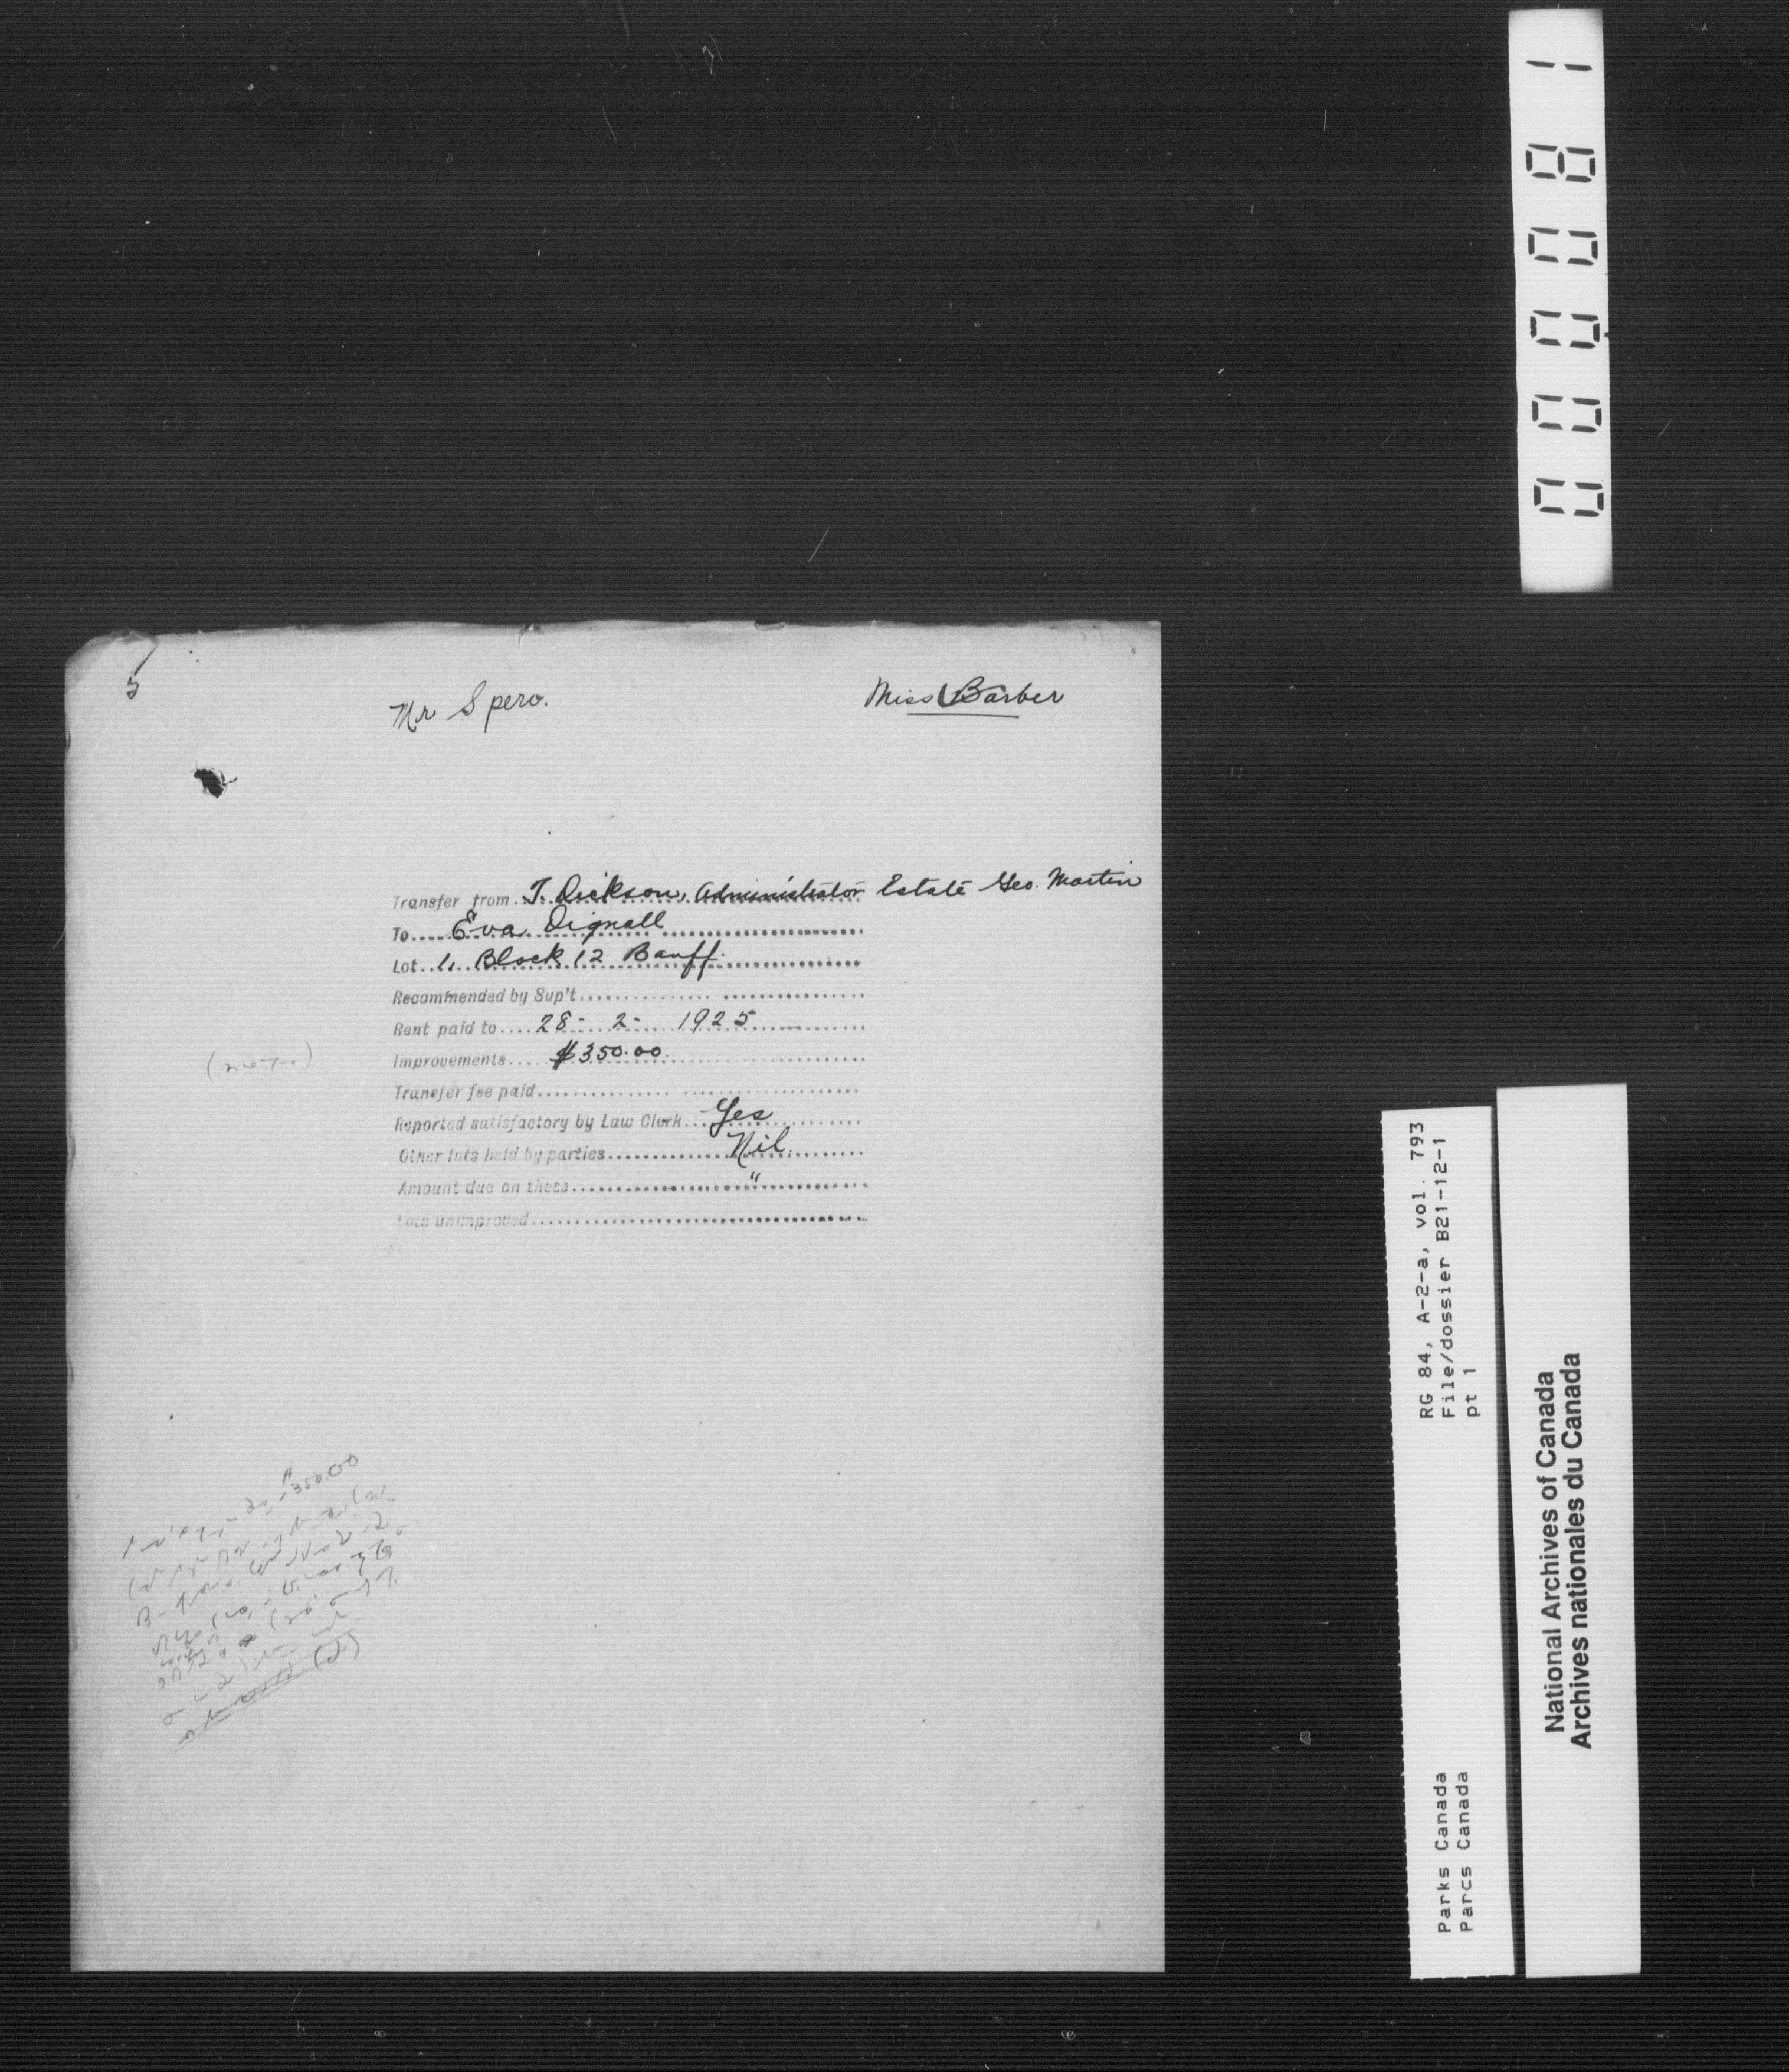 000081
5
Mr Spero.
Miss Barber
Transfer from T. Dickson, Administrator Estate Geo. Martin
To Eva Dignall
Lot 1, Block 12 Banff.
Recommended by Sup't
Rent paid to 28- 2- 1925
Improvements $350.00
Transfer fee paid
Reported satisfactory by Law Clerk Yes
Other lots held by parties Nil
Amount due on these "
Lots unimproved
$350.00
RG 84, A-2-a, vol. 793
File/dossier B21-12-1
pt 1
Parks Canada
Parcs Canada
National Archives of Canada
Archives nationales du Canada